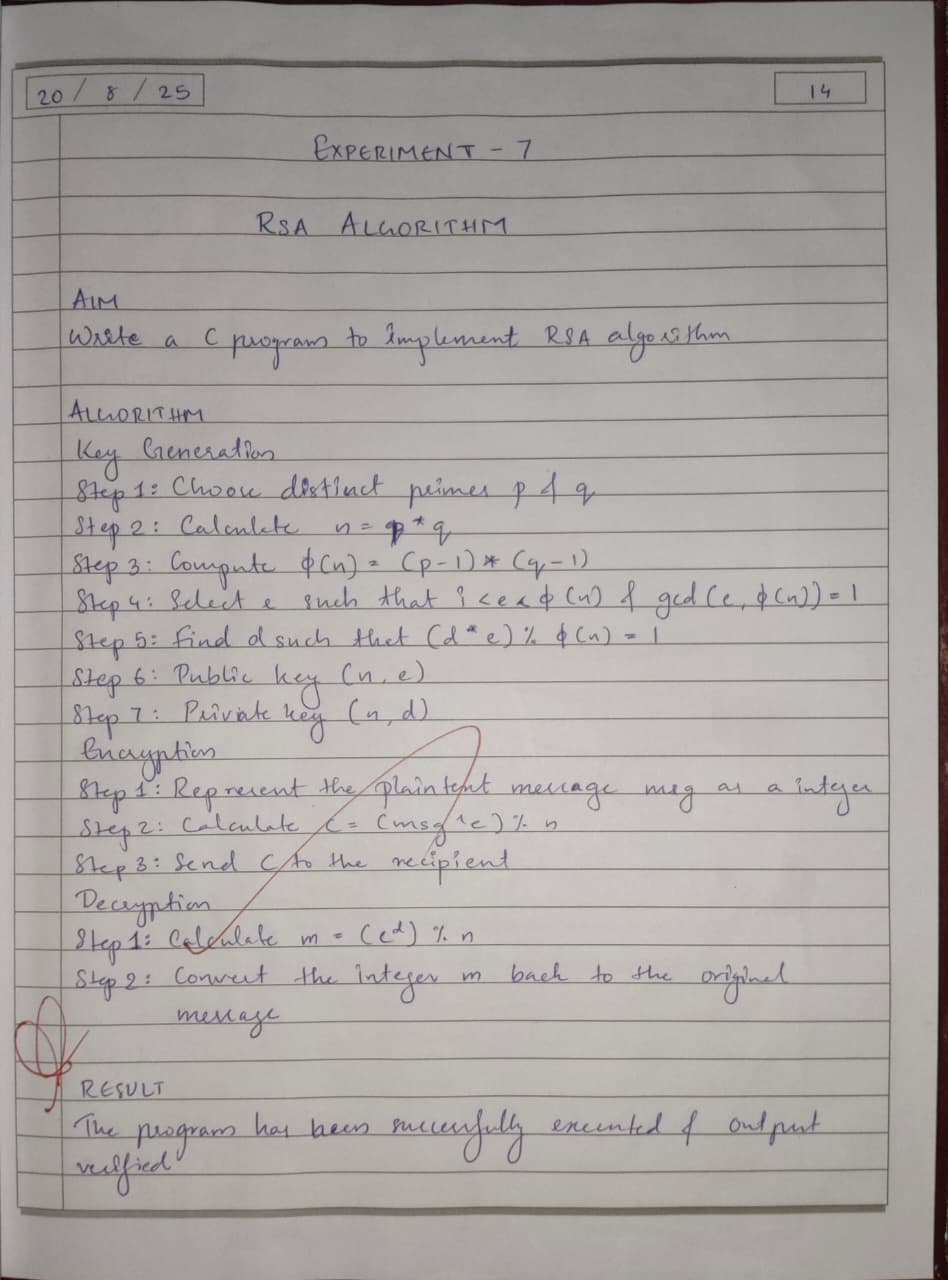 20 / 8 / 25
14
EXPERIMENT - 7
RSA ALGORITHM
AIM
Write a C program to implement RSA algorithm
ALGORITHM
Key Generation
Step 1: Choose distinct primes p & q
Step 2: Calculate n = p * q
Step 3: Compute ϕ(n) = (p-1) * (q-1)
Step 4: Select e such that 1 < e < ϕ(n) & gcd(e, ϕ(n)) = 1
Step 5: Find d such that (d * e) % ϕ(n) = 1
Step 6: Public key (n, e)
Step 7: Private key (n, d)
Encryption
Step 1: Represent the plaintext message msg as a integer
Step 2: Calculate C = (msg ^ e) % n
Step 3: Send C to the recipient
Decryption
Step 1: Calculate m = (c^d) % n
Step 2: Convert the integer m back to the original
message
RESULT
The program has been successfully executed & output
verified